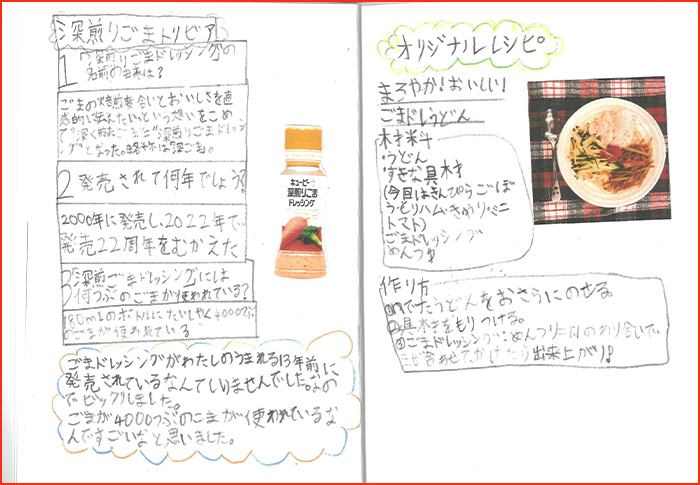 深煎りごまトリビア
1 「深煎りごまドレッシング」の
名前の由来は?
ごまの焙煎度合いとおいしさを直
感的に伝えたいという想いをこめ
て"深く煎たごま"="深煎りごまドレッシン
グ"となった。略称は深ごま。
2 発売されて何年でしょう?
2000年に発売し、2022年で
発売22周年をむかえた
3 「深煎ごまドレッシング」には
何つぶのごまが使われている?
180mLのボトルにたいしやく4000つぶ
のごまが使われている
ごまドレッシングがわたしのうまれる13年前に
発売されているなんてしりませんでした。なの
でビックリしました。
ごまが4000つぶのごまが使われているな
んてすごいなと思いました。
キユーピー
深煎りごま
ドレッシング
オリジナルレシピ
まろやか!おいしい!
ごまドレうどん
材料
・うどん
・すきな具材
(今日はきんぴらごぼ
う・とりハム・きゅうり・ミニ
トマト)
・ごまドレッシング
・めんつゆ
作り方
①ゆでたうどんをおさらにのせる
②具材をもりつける。
③ごまドレッシング:めんつゆ=1:1のわり合いで
まぜ合わせてかけたら出来上がり!